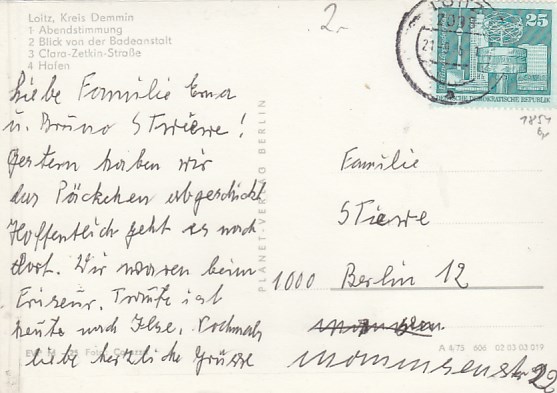 Loitz, Kreis Demmin
1 Abendstimmung
2 Blick von der Badeanstalt
3 Clara-Zetkin-Straße
4 Hafen
2.-
LOITZ
25
DEUTSCHE DEMOKRATISCHE REPUBLIK
1854
Liebe Familie Erna
u. Bruno Stiewe!
Gestern haben wir
das Päckchen abgeschickt
Hoffentlich geht es nach
dort. Wir waren beim
Friseur. Traute ist
heute nach Ilse. Nochmals
liebe herzliche Grüsse
PLANET-VERLAG BERLIN
Familie
Stiewe
1000 Berlin 12
Mommsenstr 22
A 4/75 606 02 03 03 019